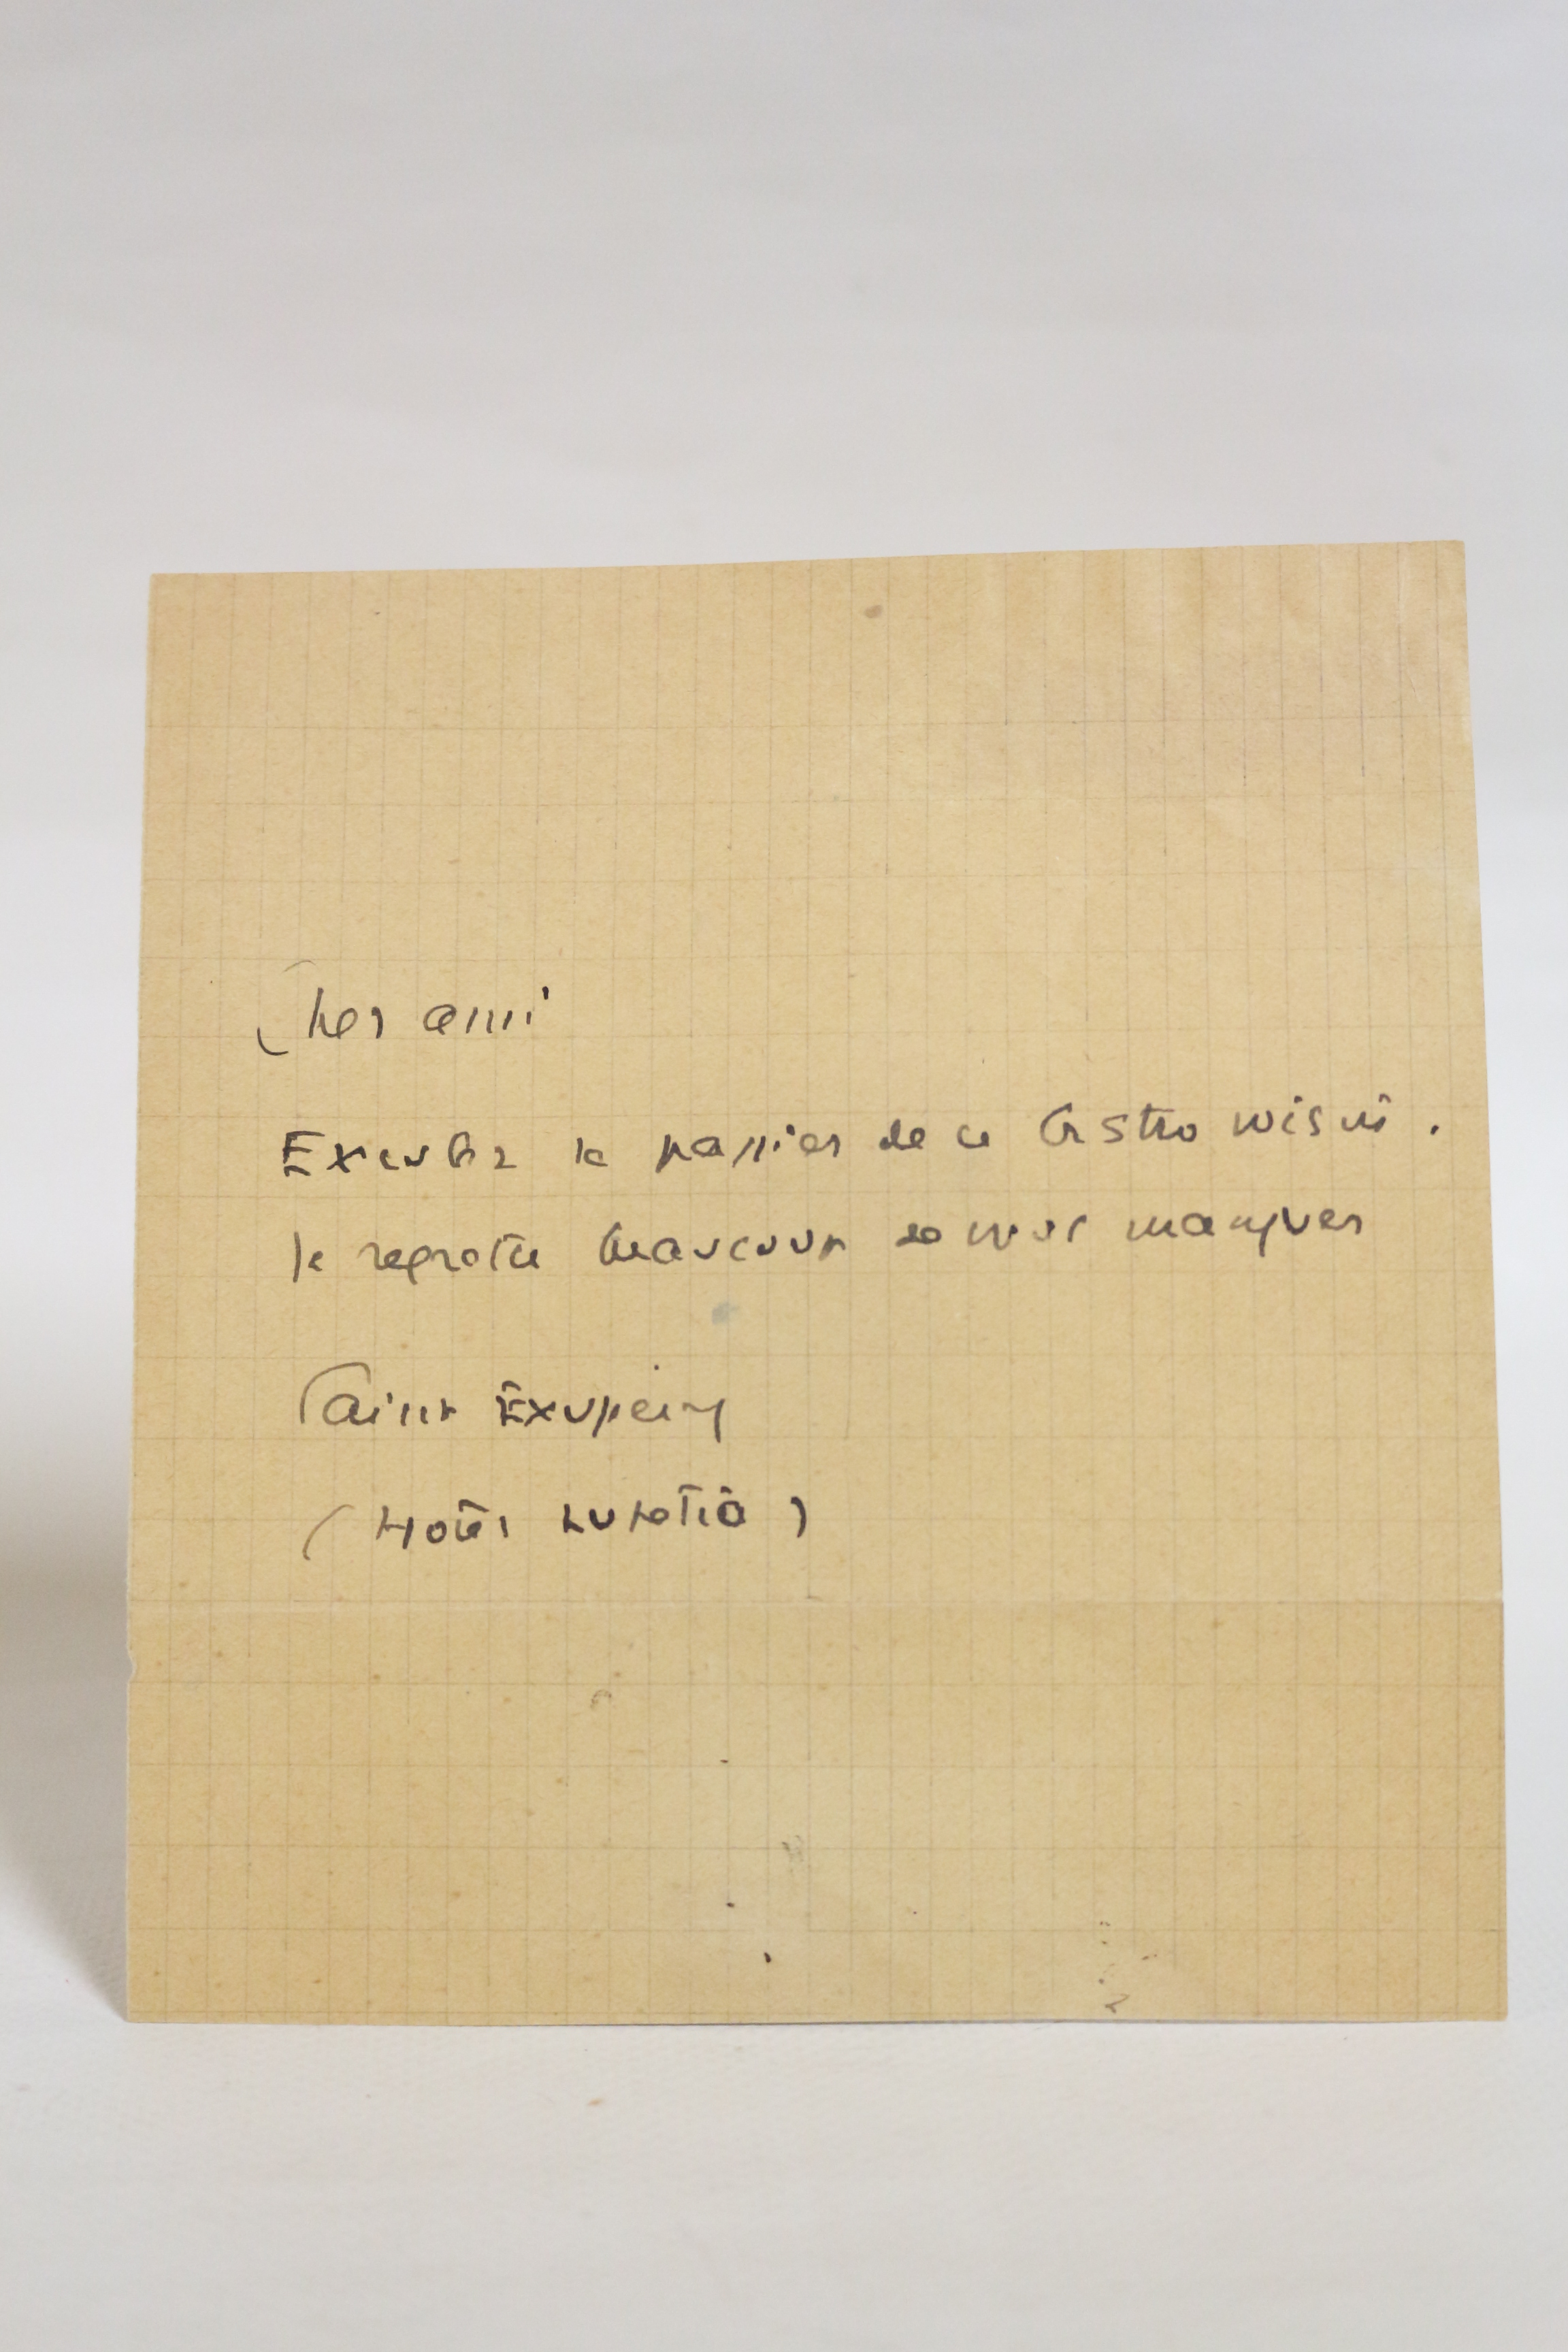 Cher ami
Excusez le papier de ce bistro voisin.
Je regrette beaucoup de vous manquer
Saint Exupéry
(Hotel Lutetia)